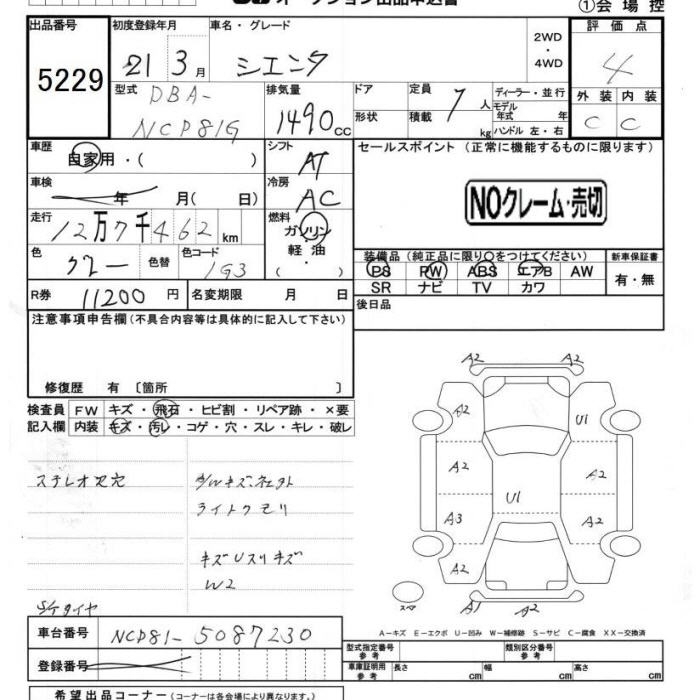 オークション出品申込書 ①会場控
出品番号 初度登録年月 車名・グレード 2WD・4WD 評価点
5229 21 3月 シエンタ 4
型式 DBA-NCP81G 排気量 1490cc ドア 定員 7人 ディーラー・並行 外装 内装
形状 積載 kg モデル年式 年 ハンドル 左・右 C C
車歴 自家用・( ) シフト AT セールスポイント (正常に機能するものに限ります)
車検 年 月(日) 冷房 AC
NOクレーム・売切
走行 12万7千462km 燃料 ガソリン・軽油 ( )
色 グレー 色替 色コード 1G3 装備品(純正品に限り○をつけてください) 新車保証書
PS PW ABS エアB AW 有・無
SR ナビ TV カワ
R券 11200円 名変期限 月 日 後日品
注意事項申告欄(不具合内容等は具体的に記入して下さい)
修復歴 有〔箇所 〕
検査員 FW キズ・飛石・ヒビ割・リペア跡・×要
記入欄 内装 キズ・汚レ・コゲ・穴・スレ・キレ・破レ
ステレオ欠穴
ライトクモリ
キズUスリキズ
W2
S/Tタイヤ
A2 A2
A2 U1
A2 U1 A2
A3 A2
A2 A2
スペア A1 A2
A-キズ E-エクボ U-凹み W-補修跡 S-サビ C-腐食 XX-交換済
車台番号 NCP81-5087230 型式指定番号 参考 類別区分番号 参考
登録番号 車庫証明用 参考 長さ cm 幅 cm 高さ cm
希望出品コーナー(コーナーは各会場により異なります。)